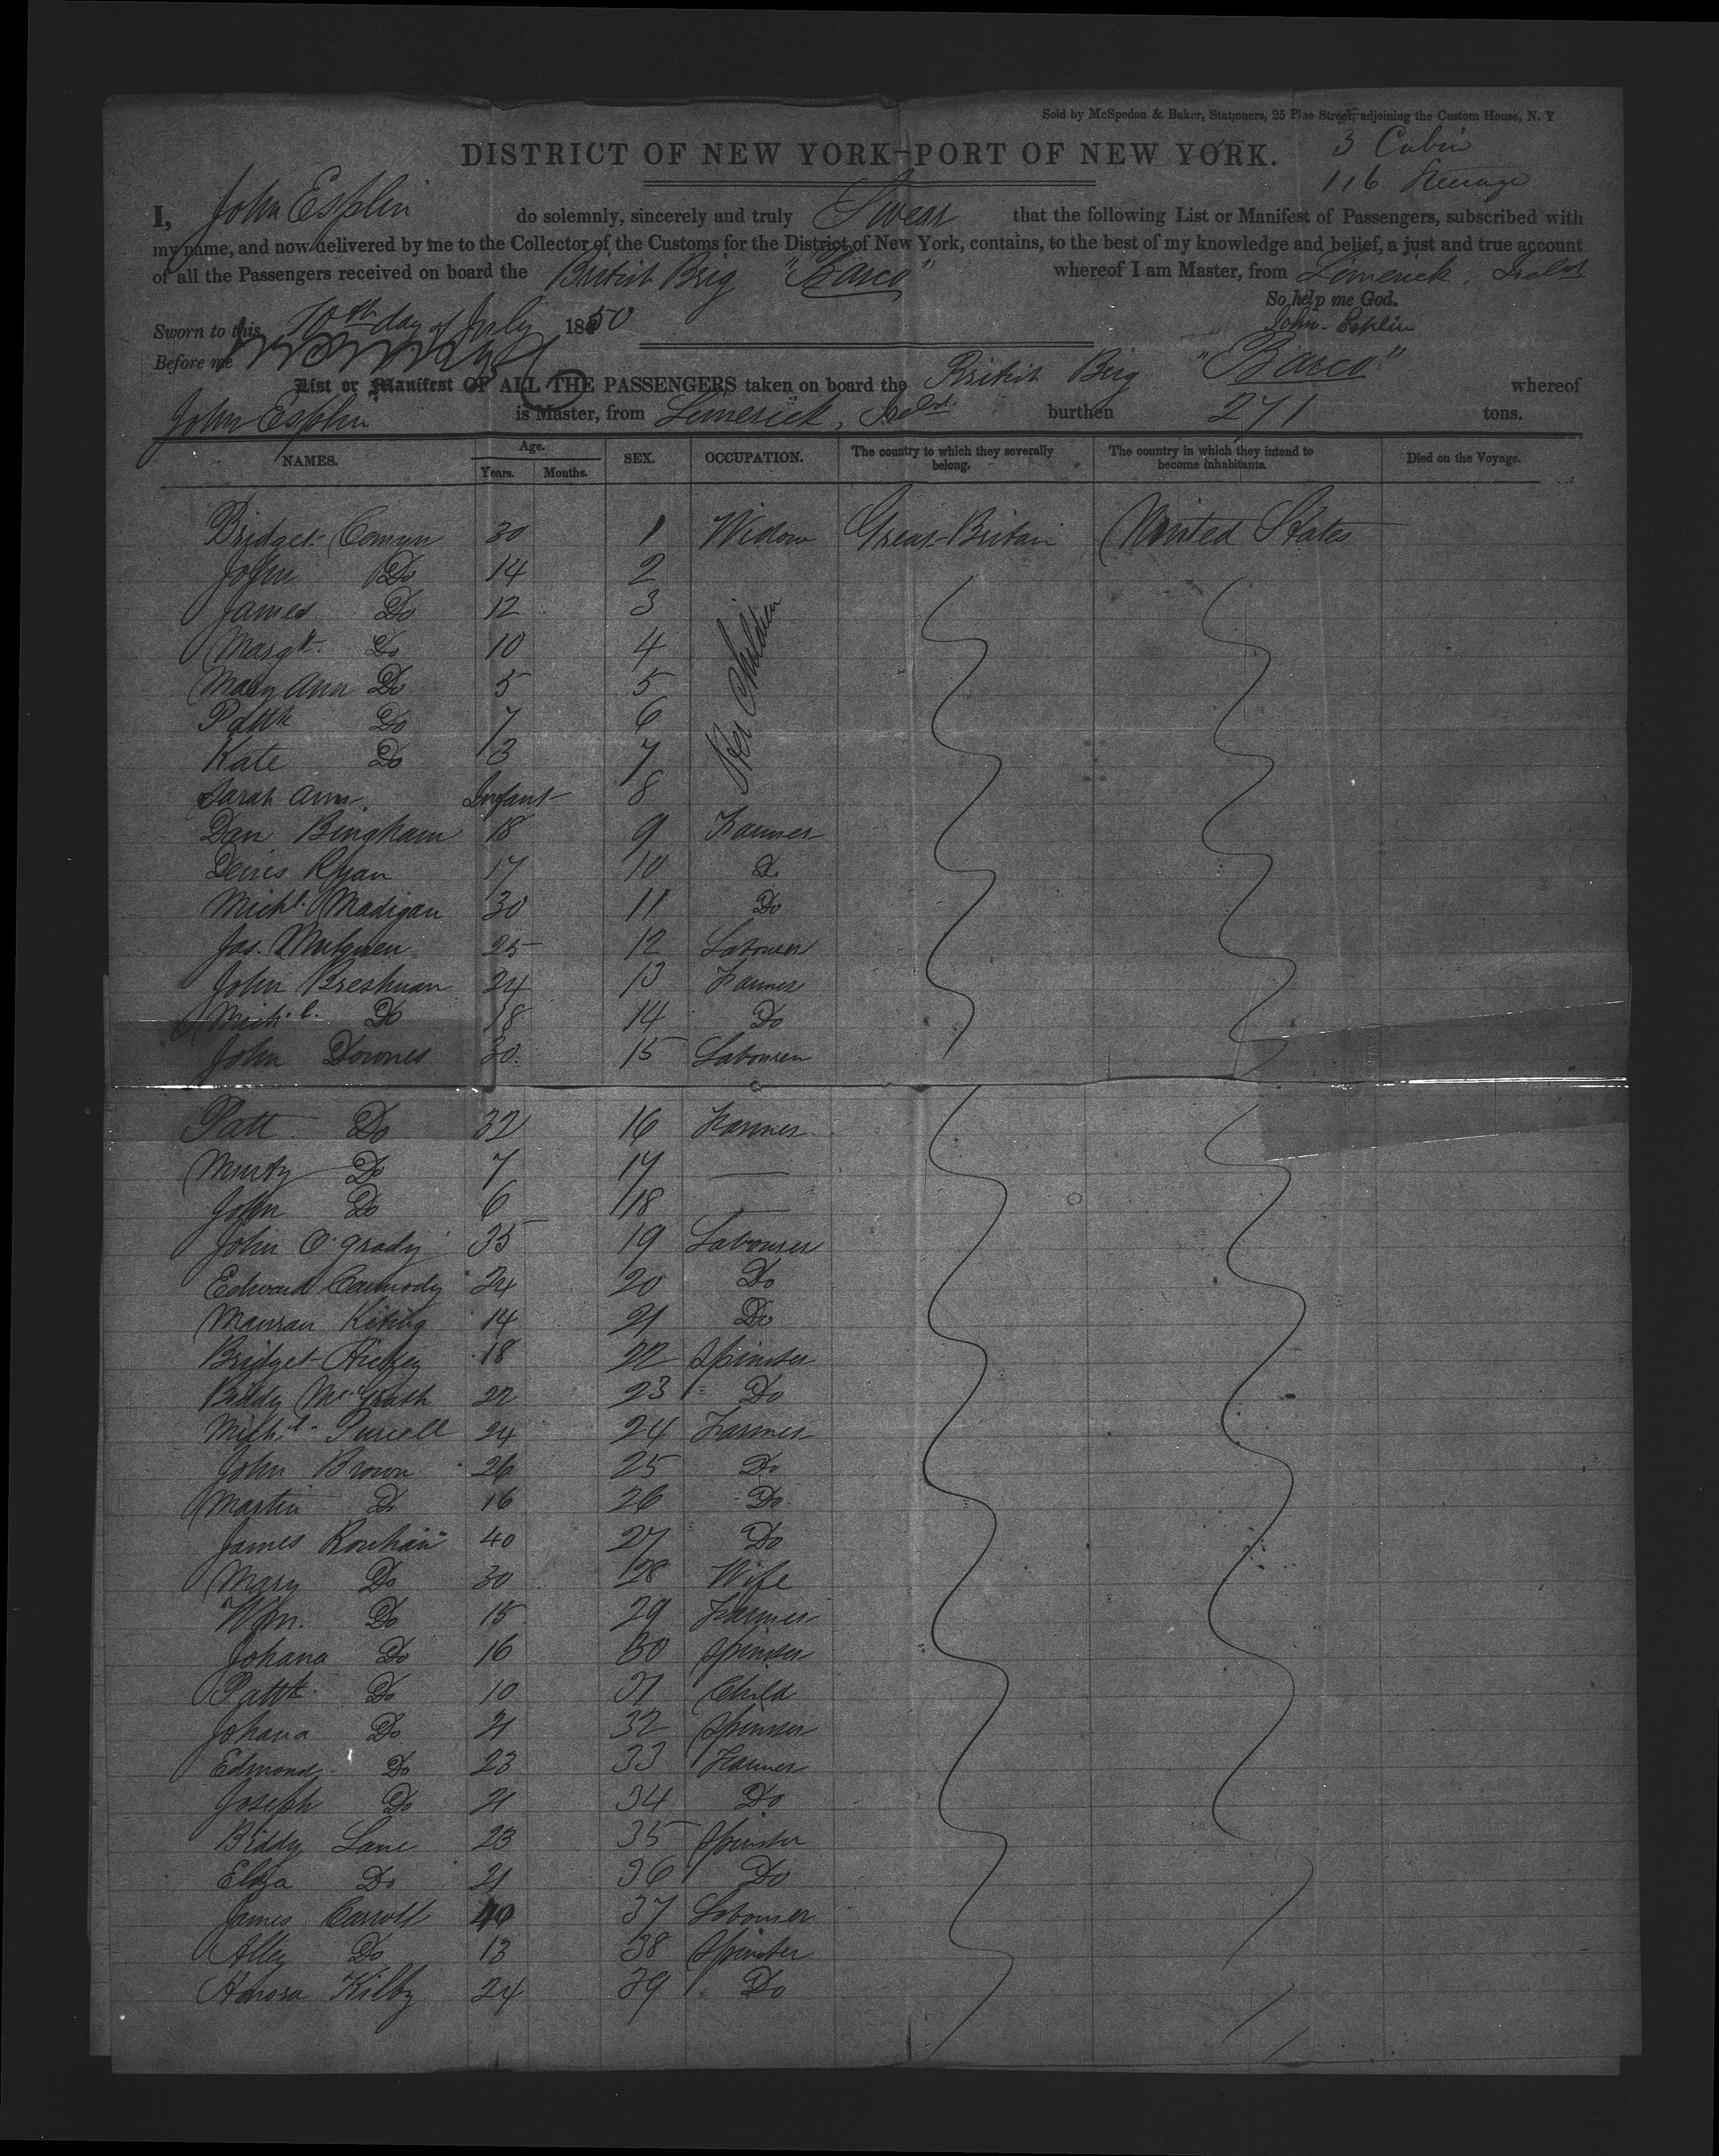 Sold by McSpedon & Baker, Stationers, 25 Pine Street, adjoining the Custom House, N. Y
DISTRICT OF NEW YORK—PORT OF NEW YORK.
3 Cabin
116 Steerage
I, John Esplin do solemnly, sincerely and truly Swear that the following List or Manifest of Passengers, subscribed with
my name, and now delivered by me to the Collector of the Customs for the District of New York, contains, to the best of my knowledge and belief, a just and true account
of all the Passengers received on board the British Brig "Barco" whereof I am Master, from Limerick, Ireld
So help me God.
Sworn to this 10th day of July 1850 John Esplin
Before me
List or Manifest OF ALL THE PASSENGERS taken on board the British Brig "Barco" whereof
John Esplin is Master, from Limerick, Ireld. burthen 271 tons.
NAMES. Age. Years. Months. SEX. OCCUPATION. The country to which they severally belong. The country in which they intend to become inhabitants. Died on the Voyage.
Bridget Comyn 30 1 Widow Great Britain United States
John Do 14 2
James Do 12 3
Margt. Do 10 4
Mary Ann Do 5 5
Pattk Do 7 6
Kate Do 3 7
Her Children
Sarah Ann. Infant 8
Dan Bingham 18 9 Farmer
Denis Ryan 17 10 Do
Michl. Madigan 30 11 Do
Jas. 25 12 Labourer
John Breshnan 24 13 Farmer
Mich.l. Do 18 14 Do
John Downes 30 15 Labourer
Patt Do 32 16 Farmer
Murty Do 7 17 —
John Do 6 18 —
John O'grady 35 19 Labourer
Edward Carmody 24 20 Do
14 21 Do
Bridget Hickey 18 22 Spinster
Biddy McGrath 22 23 Do
Mich.l Purcell 24 24 Farmer
John Brown 26 25 Do
Martin Do 16 26 Do
James Rouhan 40 27 Do
Mary Do 30 28 Wife
Wm. Do 15 29 Farmer
Johana Do 16 30 Spinster
Pattk. Do 10 31 Child
Johana Do 21 32 Spinster
Edmond Do 23 33 Farmer
Joseph Do 21 34 Do
Biddy Lane 23 35 Spinster
Eliza Do 21 36 Do
James Carroll 40 37 Labourer
Alley Do 13 38 Spinster
Honora Kilby 24 39 Do